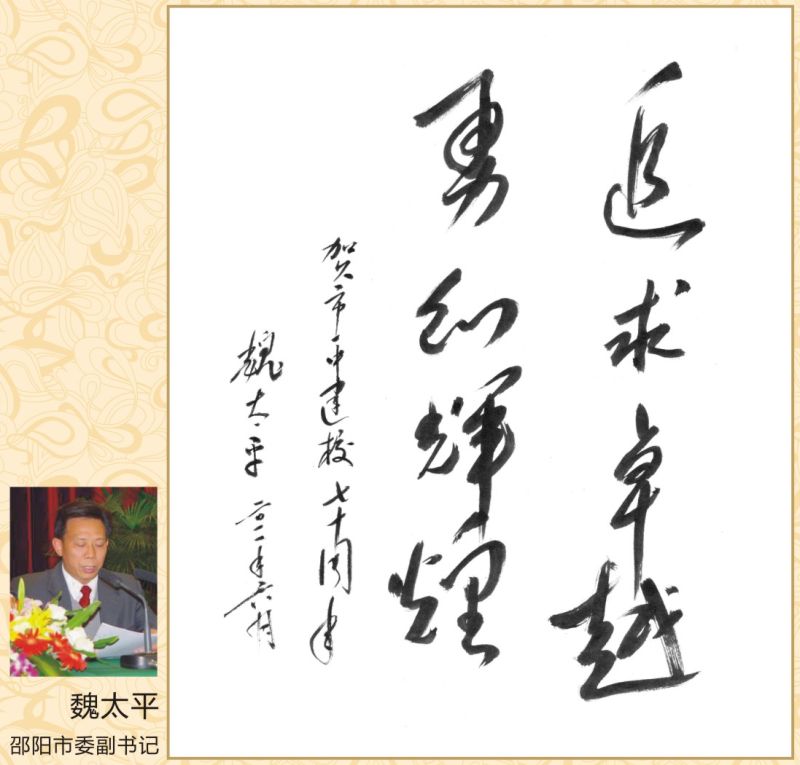 追求卓越
勇创輝煌
贺市一中建校七十周年
魏太平 二〇一一年六月
魏太平
邵阳市委副书记